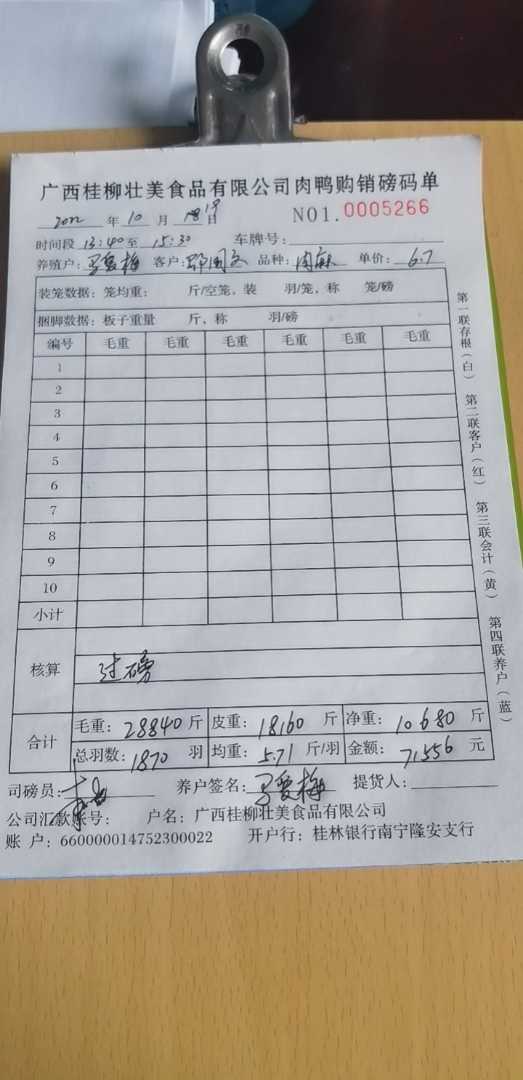 广西桂柳壮美食品有限公司肉鸭购销磅码单
2022 年 10 月 18 19 日 NO1. 0005266
时间段 13:40 至 15:30 车牌号:
养殖户: 爱梅 客户: 邓国 品种: 肉麻 单价: 6.7
装笼数据: 笼均重: 斤/空笼, 装 羽/笼, 称 笼/磅
捆脚数据: 板子重量 斤, 称 羽/磅
编号 毛重 毛重 毛重 毛重 毛重 毛重
1
2
3
4
5
6
7
8
9
10
小计
核算 过磅
合计 毛重: 28840 斤 皮重: 18160 斤 净重: 10680 斤
总羽数: 1870 羽 均重: 5.71 斤/羽 金额: 71556 元
司磅员: 养户签名: 爱梅 提货人:
公司汇款账号: 户名: 广西桂柳壮美食品有限公司
账 户: 660000014752300022 开户行: 桂林银行南宁隆安支行
第一联存根(白) 第二联客户(红) 第三联会计(黄) 第四联养户(蓝)